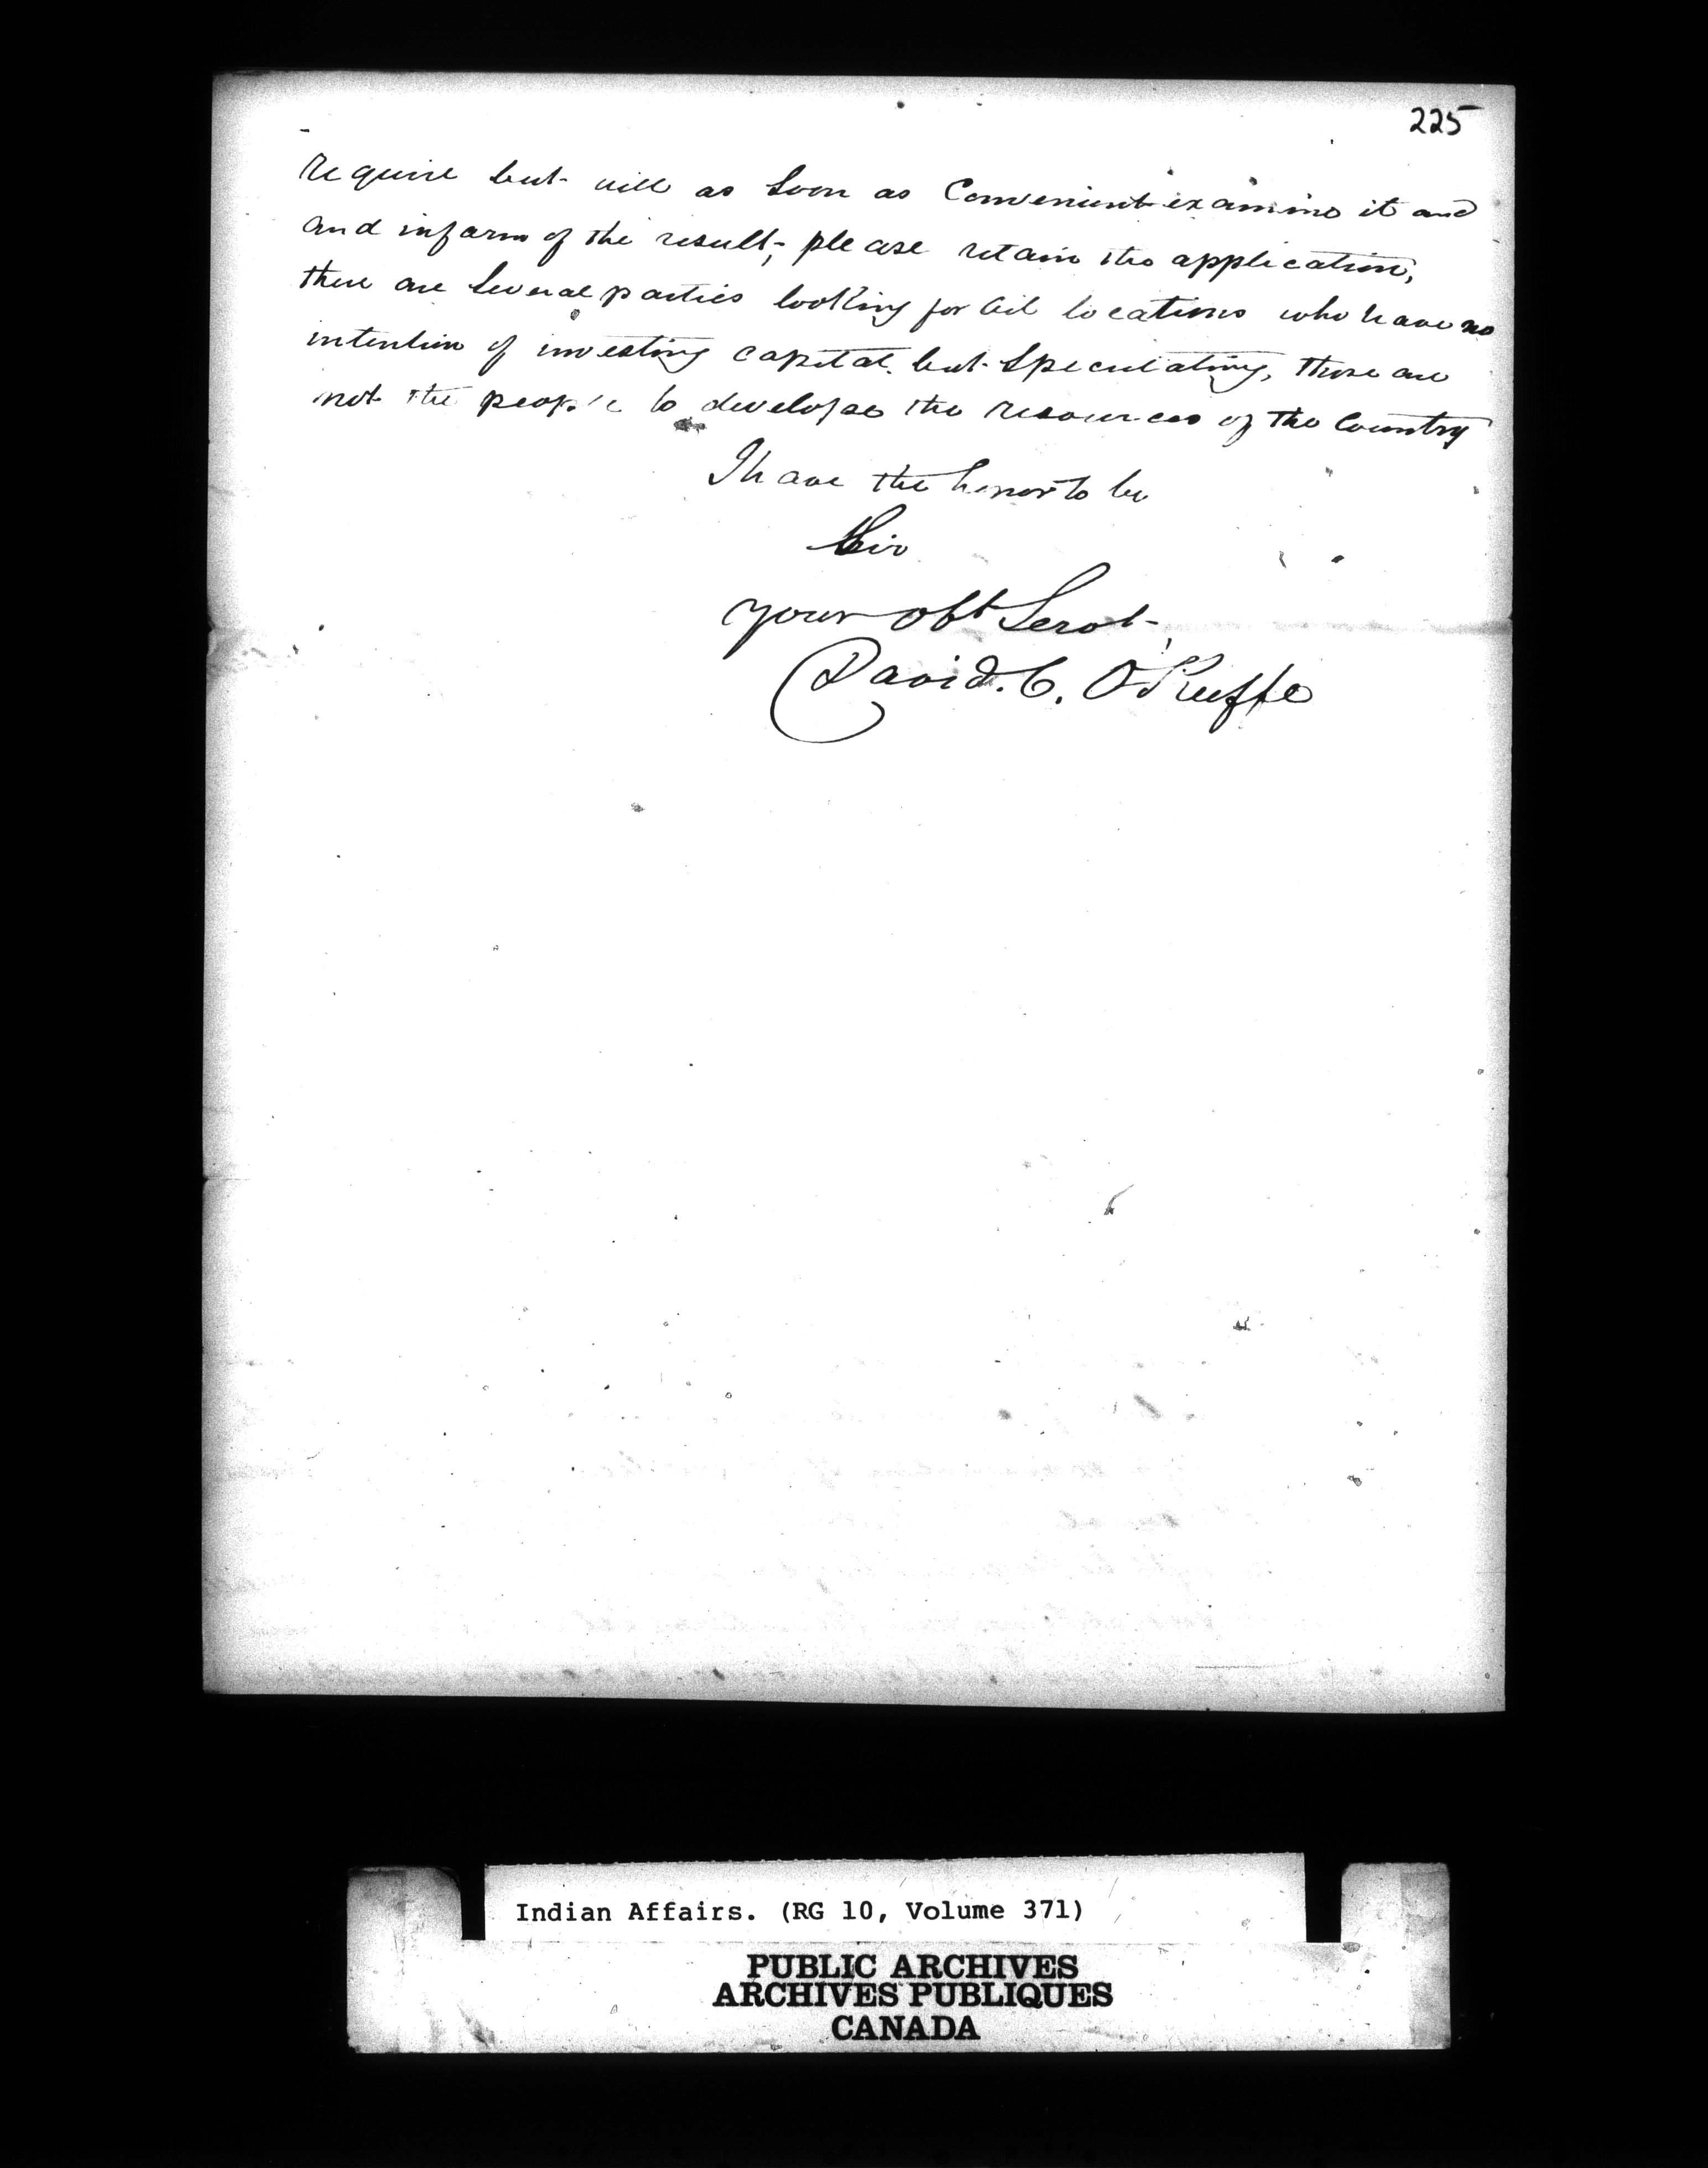 225
require but will as soon as Convenient examine it and
and inform of the result; please retain the application,
there are several parties looking for Oil locations who have no
intention of investing capital but speculating, those are
not the people to develope the resources of the Country
I have the honor to be
Sir
your obt Servt,
David. C. O'Keeffe
Indian Affairs. (RG 10, Volume 371)
PUBLIC ARCHIVES
ARCHIVES PUBLIQUES
CANADA